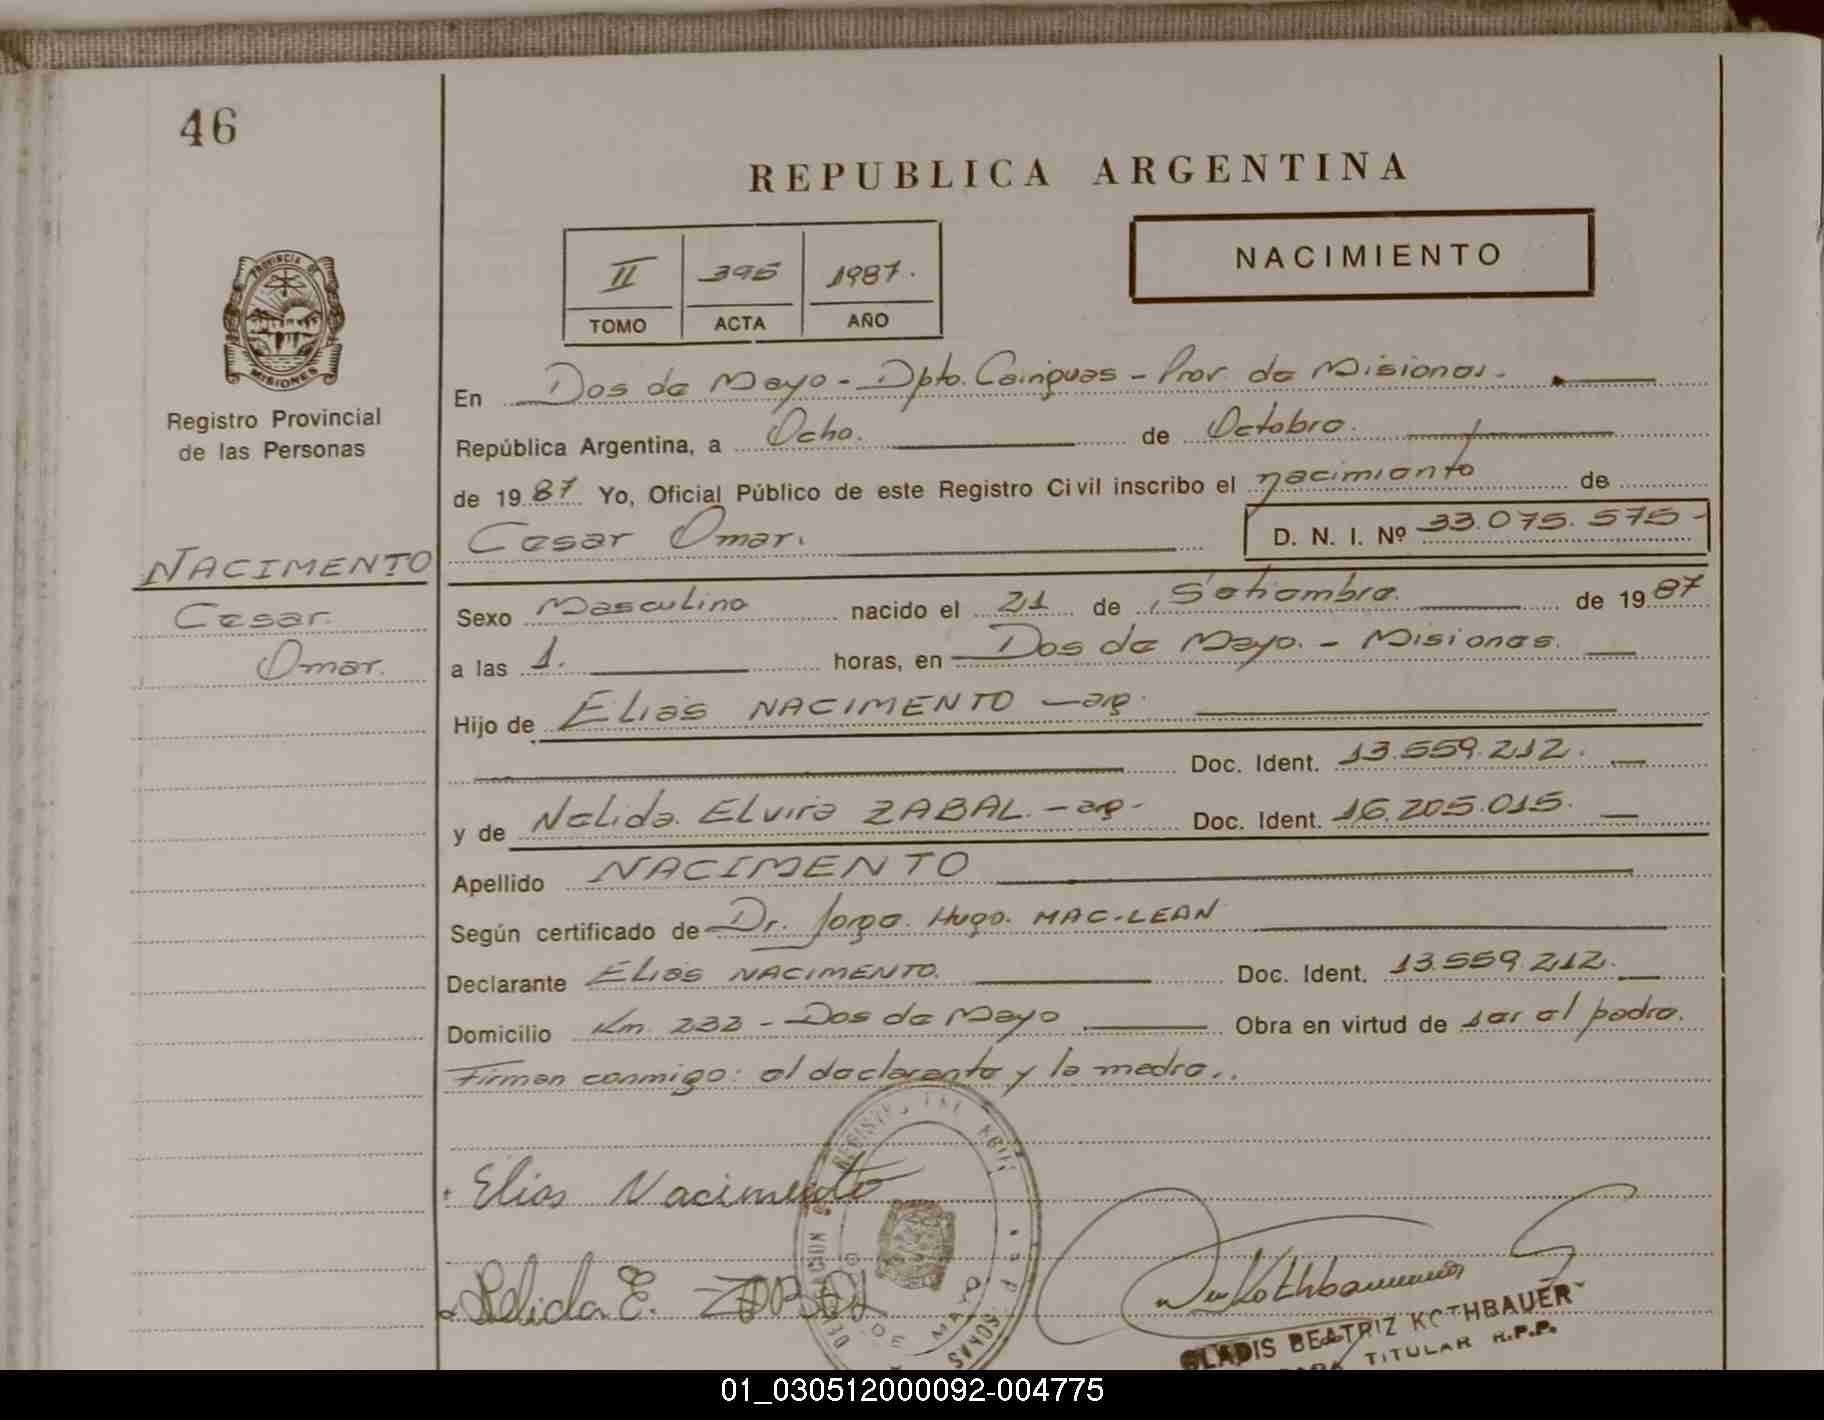 46
REPUBLICA ARGENTINA
II 395 1987.
TOMO ACTA AÑO
NACIMIENTO
PROVINCIA DE
MISIONES
Registro Provincial
de las Personas
En Dos de Mayo - Dpto. Cainguas - Prov. de Misiones.
República Argentina, a Ocho. de Octubre.
de 1987 Yo, Oficial Público de este Registro Civil inscribo el nacimiento de
Cesar Omar. D. N. I. Nº 33.075.575-
NACIMENTO
Cesar.
Omar.
Sexo Masculino nacido el 21 de Setiembre. de 1987
a las 1. horas, en Dos de Mayo. - Misiones.
Hijo de Elias NACIMENTO - arg.
Doc. Ident. 13.559.212.
y de Nelida. Elvira ZABAL. - arg - Doc. Ident. 16.205.015.
Apellido NACIMENTO
Según certificado de Dr. Jorge. Hugo. MAC-LEAN
Declarante Elias NACIMENTO. Doc. Ident. 13.559.212.
Domicilio Km. 233 - Dos de Mayo Obra en virtud de ser el padre.
Firman conmigo: el declarante y la madre..
Elias Nacimento
Nelida E. ZABAL
DE MAYO
GLADIS BEATRIZ KOTHBAUER
TITULAR R.P.P.
01_030512000092-004775